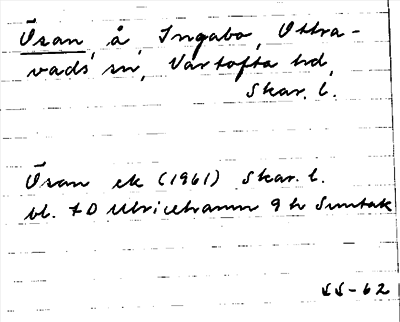 Ösan, å, Ingabo, Ottra-
vads sn, Vartofta hd,
Skar. l.
Ösan ek (1961) Skar. l.
bl. 7D Ulricehamn 9h Suntak
SS-62